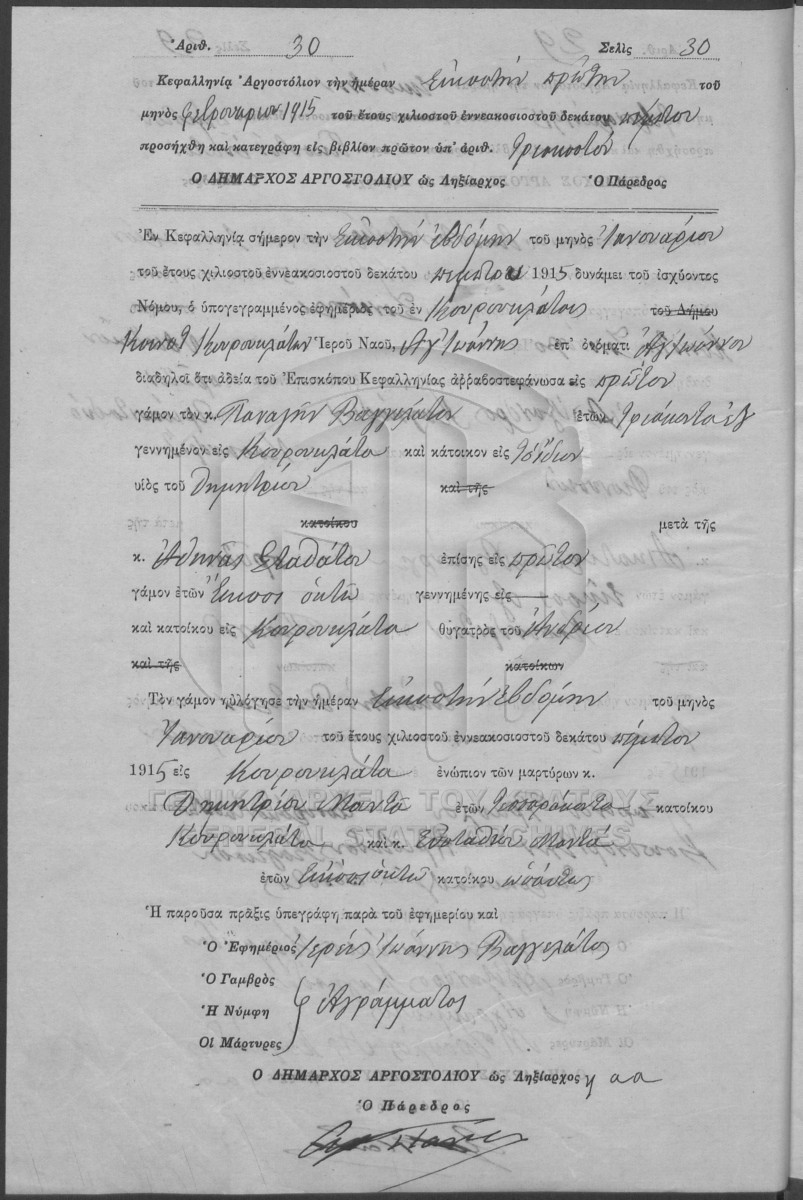 Ἀριθ. 30 Σελὶς 30
Κεφαλληνίᾳ Ἀργοστόλιον τὴν ἡμέραν Εἰκοστὴν πρώτην τοῦ
μηνὸς Φεβρουαρίου 1915 τοῦ ἔτους χιλιοστοῦ ἐννεακοσιοστοῦ δεκάτου πέμπτου
προσήχθη καὶ κατεγράφη εἰς βιβλίον πρῶτον ὑπ' ἀριθ. Τριακοστόν
Ὁ ΔΗΜΑΡΧΟΣ ΑΡΓΟΣΤΟΛΙΟΥ ὡς Ληξίαρχος Ὁ Πάρεδρος
Ἐν Κεφαλληνίᾳ σήμερον τὴν Εἰκοστὴν ἑβδόμην τοῦ μηνὸς Ἰανουαρίου
τοῦ ἔτους χιλιοστοῦ ἐννεακοσιοστοῦ δεκάτου πέμπτου 1915 δυνάμει τοῦ ἰσχύοντος
Νόμου, ὁ ὑπογεγραμμένος ἐφημέριος τοῦ ἐν Κουρουκλάτοις τοῦ Δήμου
Κοινοτ Κουρουκλάτων Ἱεροῦ Ναοῦ, Ἁγ Ἰωάννης ἐπ' ὀνόματι Ἁγ Ἰωάννου
διαδηλοῖ ὅτι ἀδείᾳ τοῦ Ἐπισκόπου Κεφαλληνίας ἀῤῥαβοστεφάνωσα εἰς πρῶτον
γάμον τὸν κ. Παναγῆν Βαγγελάτον ἐτῶν τριάκοντα ἓξ
γεννημένον εἰς Κουρουκλάτα καὶ κάτοικον εἰς τὸ ἴδιον
υἱὸς τοῦ Δημητρίου καὶ τῆς
κατοίκου μετὰ τῆς
κ. Ἀθηνᾶς Σταθάτου ἐπίσης εἰς πρῶτον
γάμον ἐτῶν Εἴκοσι ὀκτὼ γεννημένης εἰς
καὶ κατοίκου εἰς Κουρουκλάτα θυγατρὸς τοῦ Ἀνδρέου
καὶ τῆς κατοίκων
Τὸν γάμον ηὐλόγησε τὴν ἡμέραν Εἰκοστὴν Ἑβδόμην τοῦ μηνὸς
Ἰανουαρίου τοῦ ἔτους χιλιοστοῦ ἐννεακοσιοστοῦ δεκάτου πέμπτου
1915 εἰς Κουρουκλάτα ἐνώπιον τῶν μαρτύρων κ.
Δημητρίου Μαντᾶ ἐτῶν τεσσαράκοντα κατοίκου
Κουρουκλάτα καὶ κ. Εὐσταθίου Μαντᾶ
ἐτῶν Εἴκοσι ὀκτὼ κατοίκου ὡσαύτως
Ἡ παροῦσα πρᾶξις ὑπεγράφη παρὰ τοῦ ἐφημερίου καὶ
Ὁ Ἐφημέριος Ἱερεὺς Ἰωάννης Βαγγελάτος
Ὁ Γαμβρὸς
Ἡ Νύμφη Ἀγράμματος
Οἱ Μάρτυρες
Ὁ ΔΗΜΑΡΧΟΣ ΑΡΓΟΣΤΟΛΙΟΥ ὡς Ληξίαρχος
Ὁ Πάρεδρος
ΓΕΝΙΚΑ ΑΡΧΕΙΑ ΤΟΥ ΚΡΑΤΟΥΣ
GENERAL STATE ARCHIVES